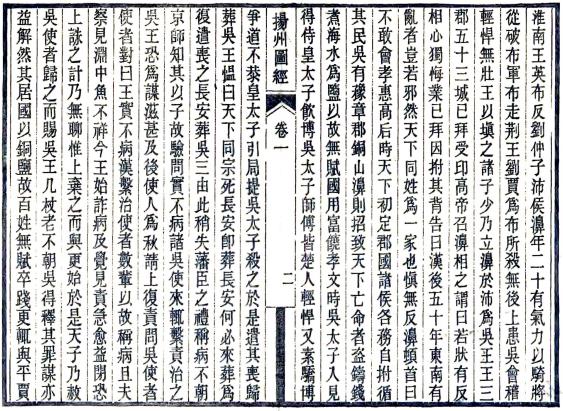 淮南王英布反劉仲子沛侯濞年二十有氣力以騎將
從破布軍布走荆王劉賈爲布所殺無後上患吳會稽
輕悍無壯王以塡之諸子少乃立濞於沛爲吳王王三
郡五十三城已拜受印高帝召濞相之謂曰若狀有反
相心獨悔業已拜因拊其背告曰漢後五十年東南有
亂者豈若邪然天下同姓爲一家也愼無反濞頓首曰
不敢會孝惠高后時天下初定郡國諸侯各務自拊循
其民吳有豫章郡銅山濞則招致天下亡命者盜鑄錢
煮海水爲鹽以故無賦國用富饒孝文時吳太子入見
得侍皇太子飮博吳太子師傅皆楚人輕悍又素驕博
揚州圖經
卷一
二
爭道不恭皇太子引局提吳太子殺之於是遣其喪歸
葬吳王慍曰天下同宗死長安卽葬長安何必來葬爲
復遣喪之長安葬吳三由此稍失藩臣之禮稱病不朝
京師知其以子故驗問實不病諸吳使來輒繫責治之
吳王恐爲謀滋甚及後使人爲秋請上復責問吳使者
使者對曰王實不病漢繫治使者數輩以故稱病且夫
察見淵中魚不祥今王始詐病及覺見責急愈益閉恐
上誅之計乃無聊惟上棄之而與更始於是天子乃赦
吳使者歸之而賜吳王几杖老不朝吳得釋其罪謀亦
益解然其居國以銅鹽故百姓無賦卒踐更輒與平賈